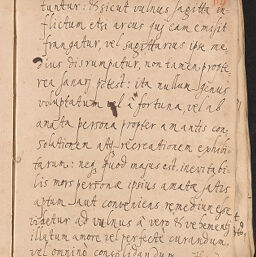 tuntur: & sicut vulnus sagitta in
flictum etsi arcus qui eam emisit
frangatur, vel sagittarius ipse me
dius disrumpatur, non tamen propte
rea sanari potest: ita nullum genus
voluptatum vel à fortuna, vel ab
amata persona propter amantis con
solationem atq recreationem exhibi
tarum: neq quod majus est, inevitabi
lis mors personæ ipsius amatæ satis
aptum aut conveniens remedium esse
videtur ad vulnus à vero & vehementi
illatum amore vel perfectè curandum,
vel omnino consolidandum